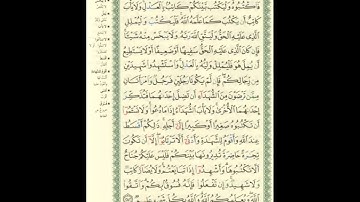 فَاكْتُبُوهُ وَلْيَكْتُب بَّيْنَكُمْ كَاتِبٌ بِالْعَدْلِ وَلَا يَأْبَ
كَاتِبٌ أَن يَكْتُبَ كَمَا عَلَّمَهُ اللَّهُ فَلْيَكْتُبْ وَلْيُمْلِلِ
الَّذِي عَلَيْهِ الْحَقُّ وَلْيَتَّقِ اللَّهَ رَبَّهُ وَلَا يَبْخَسْ مِنْهُ شَيْئًا
فَإِن كَانَ الَّذِي عَلَيْهِ الْحَقُّ سَفِيهًا أَوْ ضَعِيفًا أَوْ لَا يَسْتَطِيعُ
أَن يُمِلَّ هُوَ فَلْيُمْلِلْ وَلِيُّهُ بِالْعَدْلِ وَاسْتَشْهِدُوا شَهِيدَيْنِ
مِن رِّجَالِكُمْ فَإِن لَّمْ يَكُونَا رَجُلَيْنِ فَرَجُلٌ وَامْرَأَتَانِ
مِمَّن تَرْضَوْنَ مِنَ الشُّهَدَاءِ أَن تَضِلَّ إِحْدَاهُمَا فَتُذَكِّرَ
إِحْدَاهُمَا الْأُخْرَىٰ وَلَا يَأْبَ الشُّهَدَاءُ إِذَا مَا دُعُوا وَلَا تَسْأَمُوا
أَن تَكْتُبُوهُ صَغِيرًا أَوْ كَبِيرًا إِلَىٰ أَجَلِهِ ذَٰلِكُمْ أَقْسَطُ
عِندَ اللَّهِ وَأَقْوَمُ لِلشَّهَادَةِ وَأَدْنَىٰ أَلَّا تَرْتَابُوا إِلَّا أَن تَكُونَ
تِجَارَةً حَاضِرَةً تُدِيرُونَهَا بَيْنَكُمْ فَلَيْسَ عَلَيْكُمْ جُنَاحٌ
أَلَّا تَكْتُبُوهَا وَأَشْهِدُوا إِذَا تَبَايَعْتُمْ وَلَا يُضَارَّ كَاتِبٌ
وَلَا شَهِيدٌ وَإِن تَفْعَلُوا فَإِنَّهُ فُسُوقٌ بِكُمْ وَاتَّقُوا
اللَّهَ وَيُعَلِّمُكُمُ اللَّهُ وَاللَّهُ بِكُلِّ شَيْءٍ عَلِيمٌ